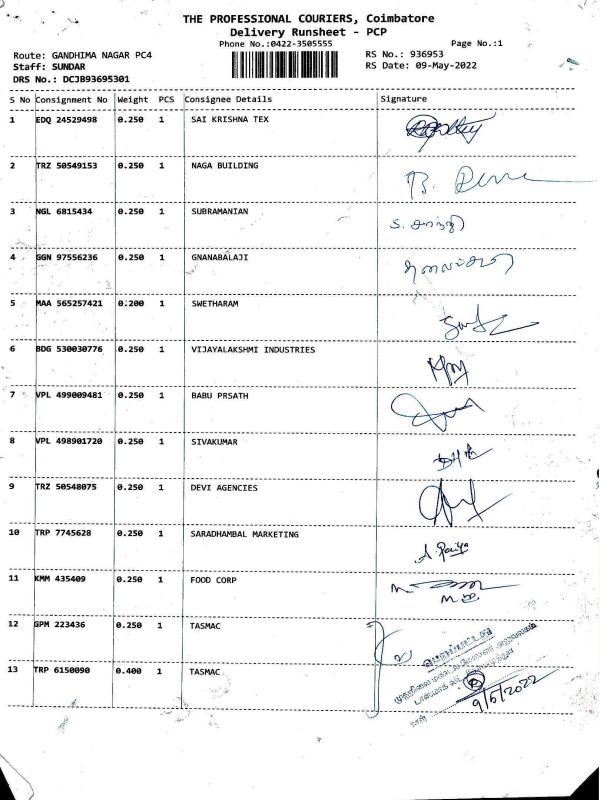 THE PROFESSIONAL COURIERS, Coimbatore
Delivery Runsheet - PCP
Phone No.:0422-3505555
Page No.:1
Route: GANDHIMA NAGAR PC4
RS No.: 936953
Staff: SUNDAR
RS Date: 09-May-2022
DRS No.: DCJB93695301
S No Consignment No Weight PCS Consignee Details Signature
1 EDQ 24529498 0.250 1 SAI KRISHNA TEX
2 TRZ 50549153 0.250 1 NAGA BUILDING
3 NGL 6815434 0.250 1 SUBRAMANIAN
4 GGN 97556236 0.250 1 GNANABALAJI
5 MAA 565257421 0.200 1 SWETHARAM
6 BDG 530030776 0.250 1 VIJAYALAKSHMI INDUSTRIES
7 VPL 499009481 0.250 1 BABU PRSATH
8 VPL 498901720 0.250 1 SIVAKUMAR
9 TRZ 50548075 0.250 1 DEVI AGENCIES
10 TRP 7745628 0.250 1 SARADHAMBAL MARKETING
11 KMM 435409 0.250 1 FOOD CORP
12 GPM 223436 0.250 1 TASMAC
பெறப்பட்டது
13 TRP 6150090 0.400 1 TASMAC
9/5/2022
நாள்